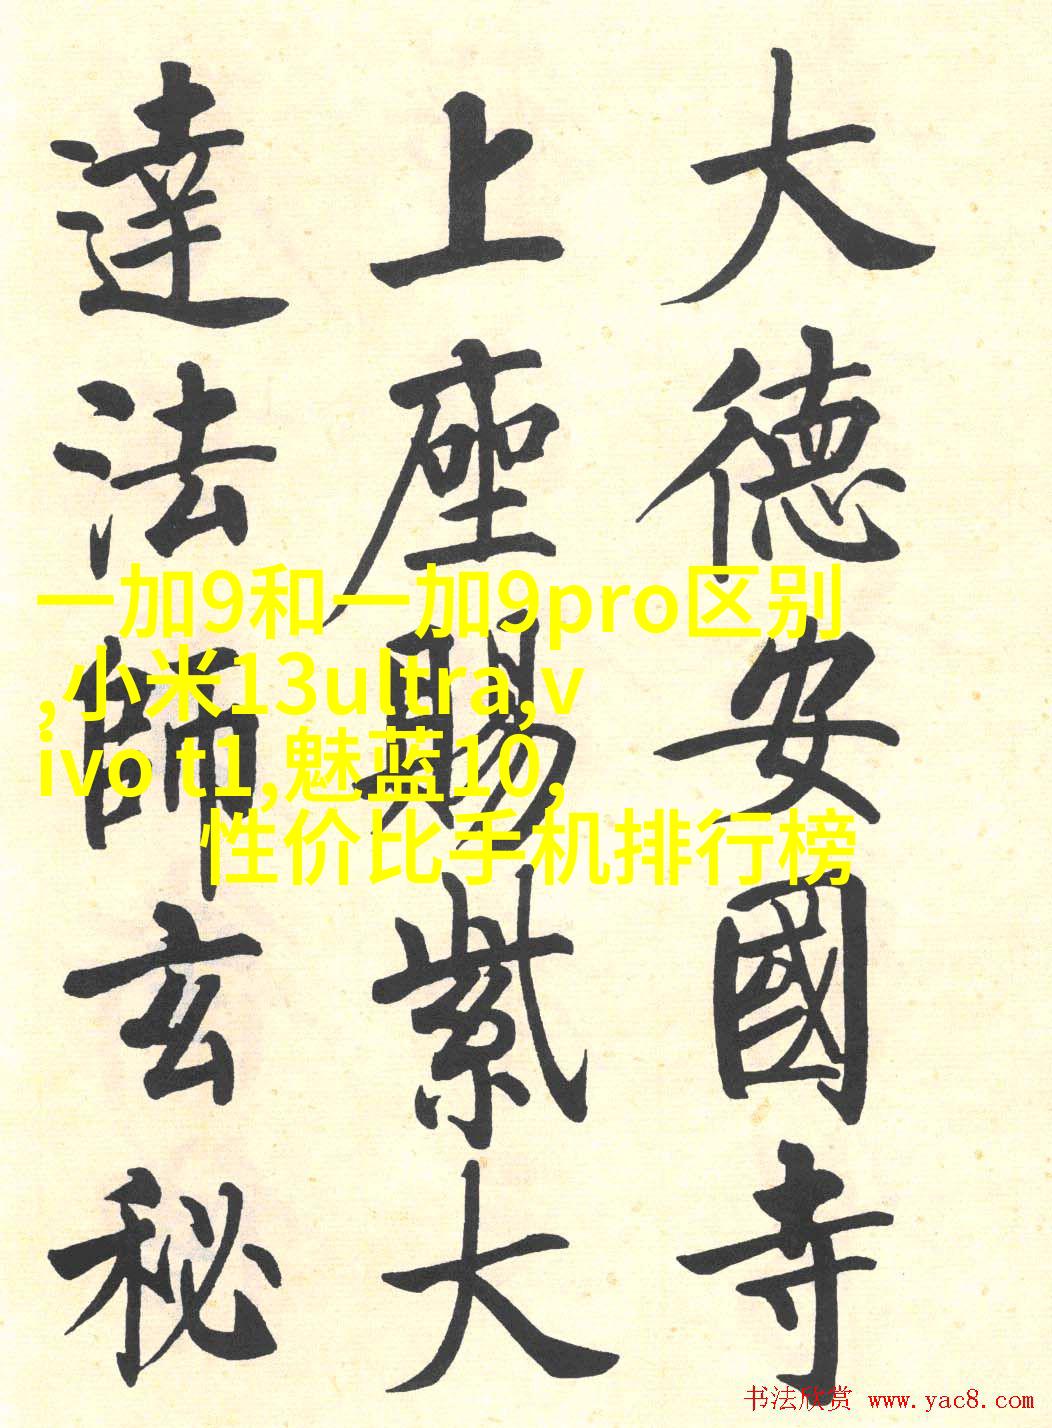 大德安國寺
上座賜紫大
達法師玄秘
一加9和一加9pro区别
,小米13ultra,v
ivo t1,魅蓝10,
性价比手机排行榜
书法欣赏 www.yac8.com